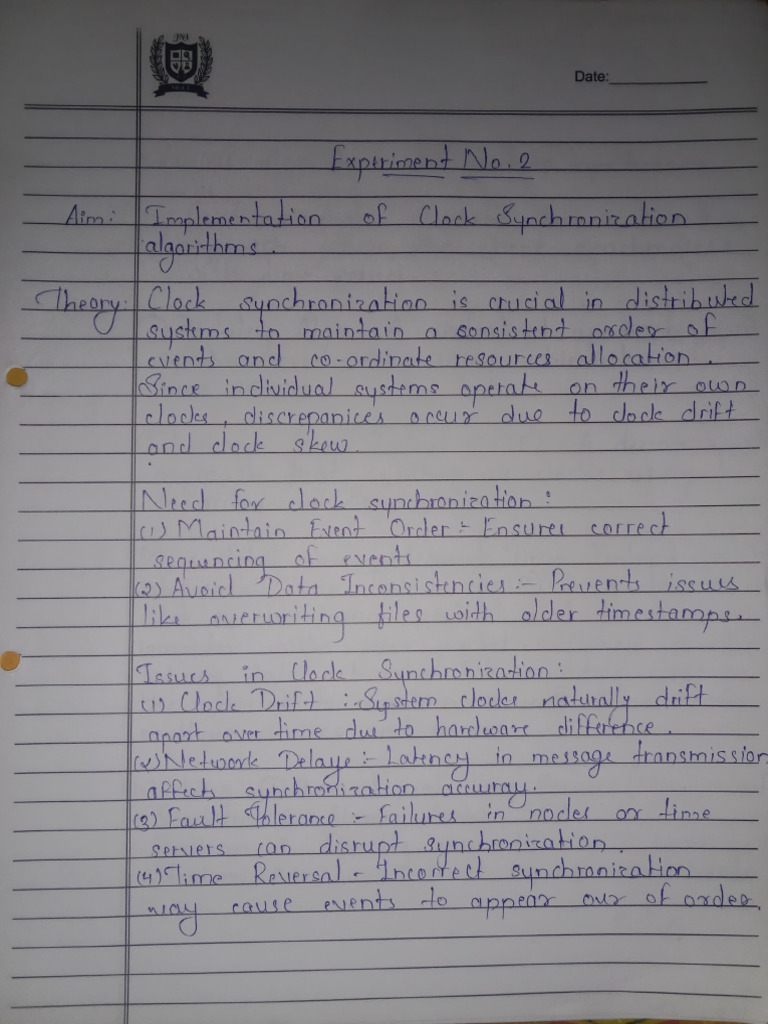 Date:
Experiment No. 2
Aim: Implementation of Clock Synchronization
algorithms.
Theory: Clock synchronization is crucial in distributed
systems to maintain a consistent order of
events and co-ordinate resources allocation.
Since individual systems operate on their own
clocks, discrepanices occur due to clock drift
and clock skew.
Need for clock synchronization:
(1) Maintain Event Order :- Ensures correct
sequencing of events
(2) Avoid Data Inconsistencies :- Prevents issues
like overwriting files with older timestamps.
Issues in Clock Synchronization:
(1) Clock Drift :- System clocks naturally drift
apart over time due to hardware difference.
(2) Network Delays :- Latency in message transmission
affects synchronization accuracy.
(3) Fault Tolerance :- Failures in nodes or time
servers can disrupt synchronization.
(4) Time Reversal - Incorrect synchronization
may cause events to appear our of order.